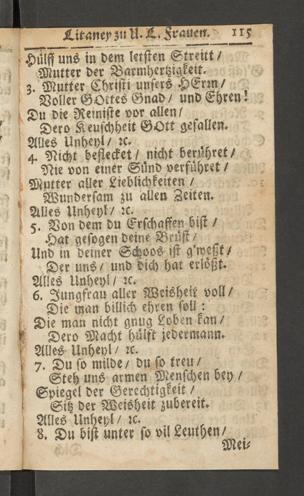 Litaney zu U. L. Frauen. 115
Hülff uns in dem letsten Streitt /
Mutter der Barmhertzigkeit.
3. Mutter Christi unsers HErrn /
Voller GOttes Gnad / und Ehren!
Du die Reiniste vor allen /
Dero Keuschheit GOtt gefallen.
Alles Unheyl / ꝛc.
4. Nicht beflecket / nicht berühret /
Nie von einer Sünd verführet /
Mutter aller Lieblichkeiten /
Wundersam zu allen Zeiten.
Alles Unheyl / ꝛc.
5. Von dem du Erschaffen bist /
Hat gesogen deine Brüst /
Und in deiner Schoos ist g'weßt /
Der uns / und dich hat erlößt.
Alles Unheyl / ꝛc.
6. Jungfrau aller Weisheit voll /
Die man billich ehren soll :
Die man nicht gnug Loben kan /
Dero Macht hülff jedermann.
Alles Unheyl / ꝛc.
7. Du so milde / du so treu /
Steh uns armen Menschen bey /
Spiegel der Gerechtigkeit /
Sitz der Weisheit zubereit.
Alles Unheyl / ꝛc.
8. Du bist unter so vil Leuthen /
Mei-